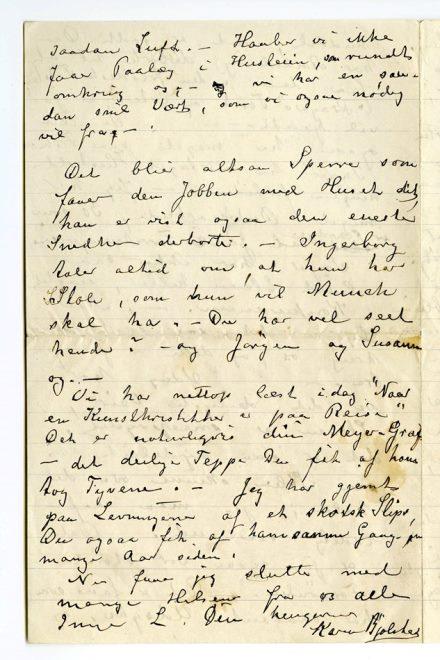 saadan Luft. – Haaber vi ikke
faar Paalæg i Husleien, som rundt
omkring os, – vi har en saa-
dan snil Vært, som vi ogsaa nødig
vil fra –.
Det blir altsaa Sperre som
faaer den Jobben med Huset dit,
han er vist ogsaa den eneste
Snedker derborte. – Ingerborg
taler altid om, at hun har
Stole, som hun vil Munch
skal ha. – Du har vel seet
hende? – og Jørgen og Susanna
og. –
Vi har nettop læst idag "Naar
en Kunsthistoriker er paa Reise"
Det er naturligvis din Meyer-Graf
– det deilige Teppe Du fik af ham
tog Tyvene. – Jeg har gjemt
paa Levningene af et skotsk Slips,
Du ogsaa fik af ham samme Gang for
mange Aar siden.
Nu faar jeg slutte med
mange Hilsner fra os alle
Inne L. Din hengivne
Karen Bjølstad